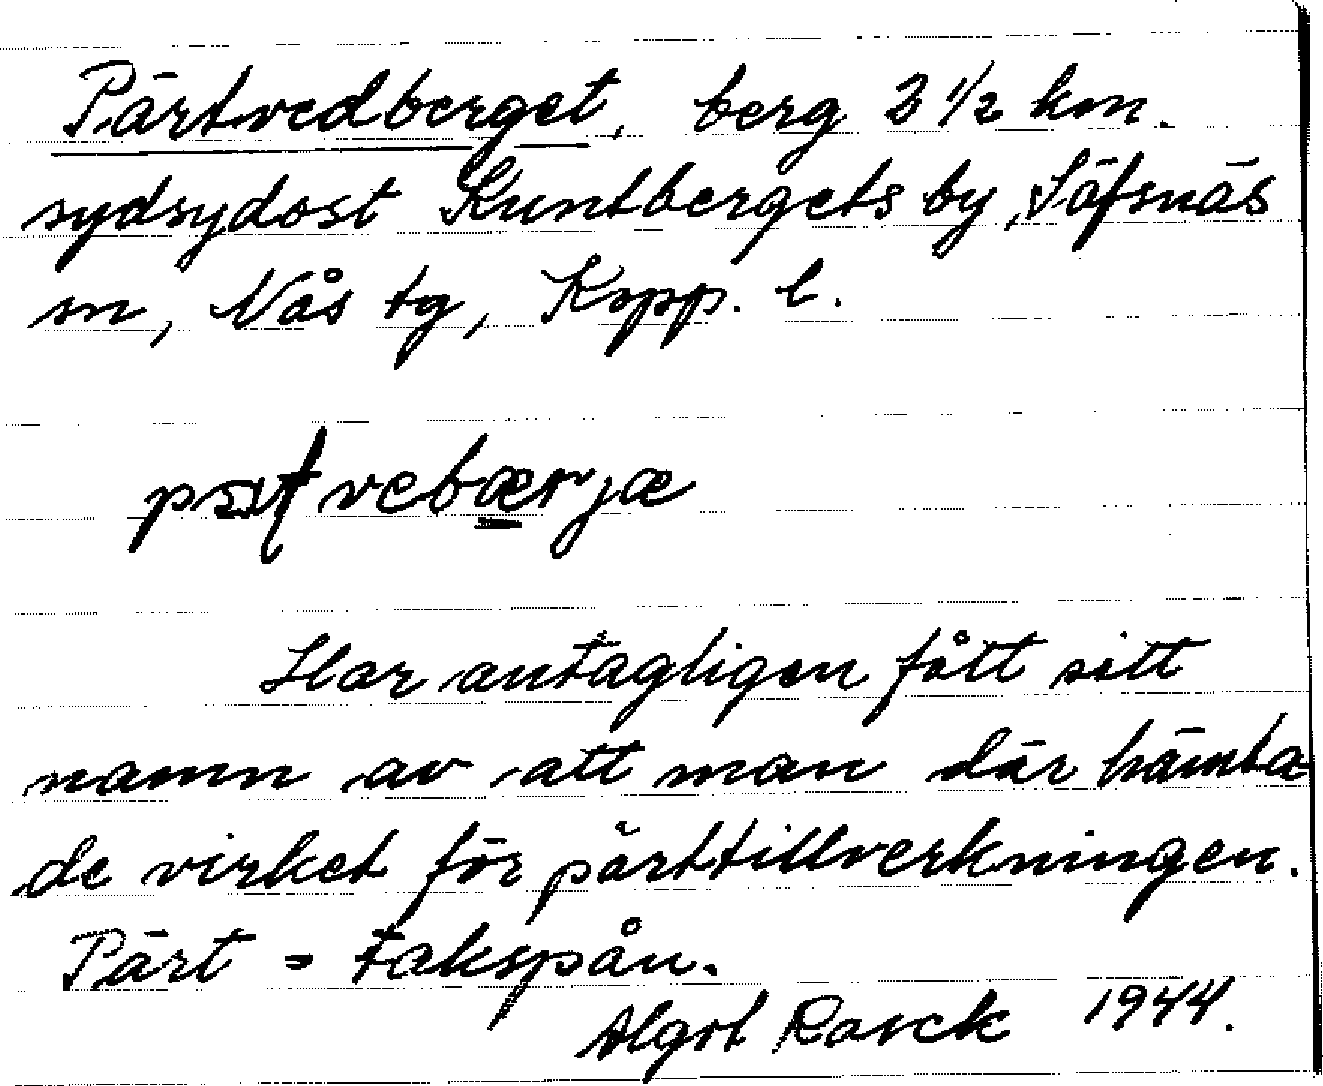 Pärtvedberget, berg 3 1/2 km.
sydsydost Kuntbergets by, Säfsnäs
sn, Nås tg, Kopp. l.
vebærjæ
Har antagligen fått sitt
namn av att man där hämta-
de virket för pärttillverkningen.
Pärt = Takspån.
Algot 1944.